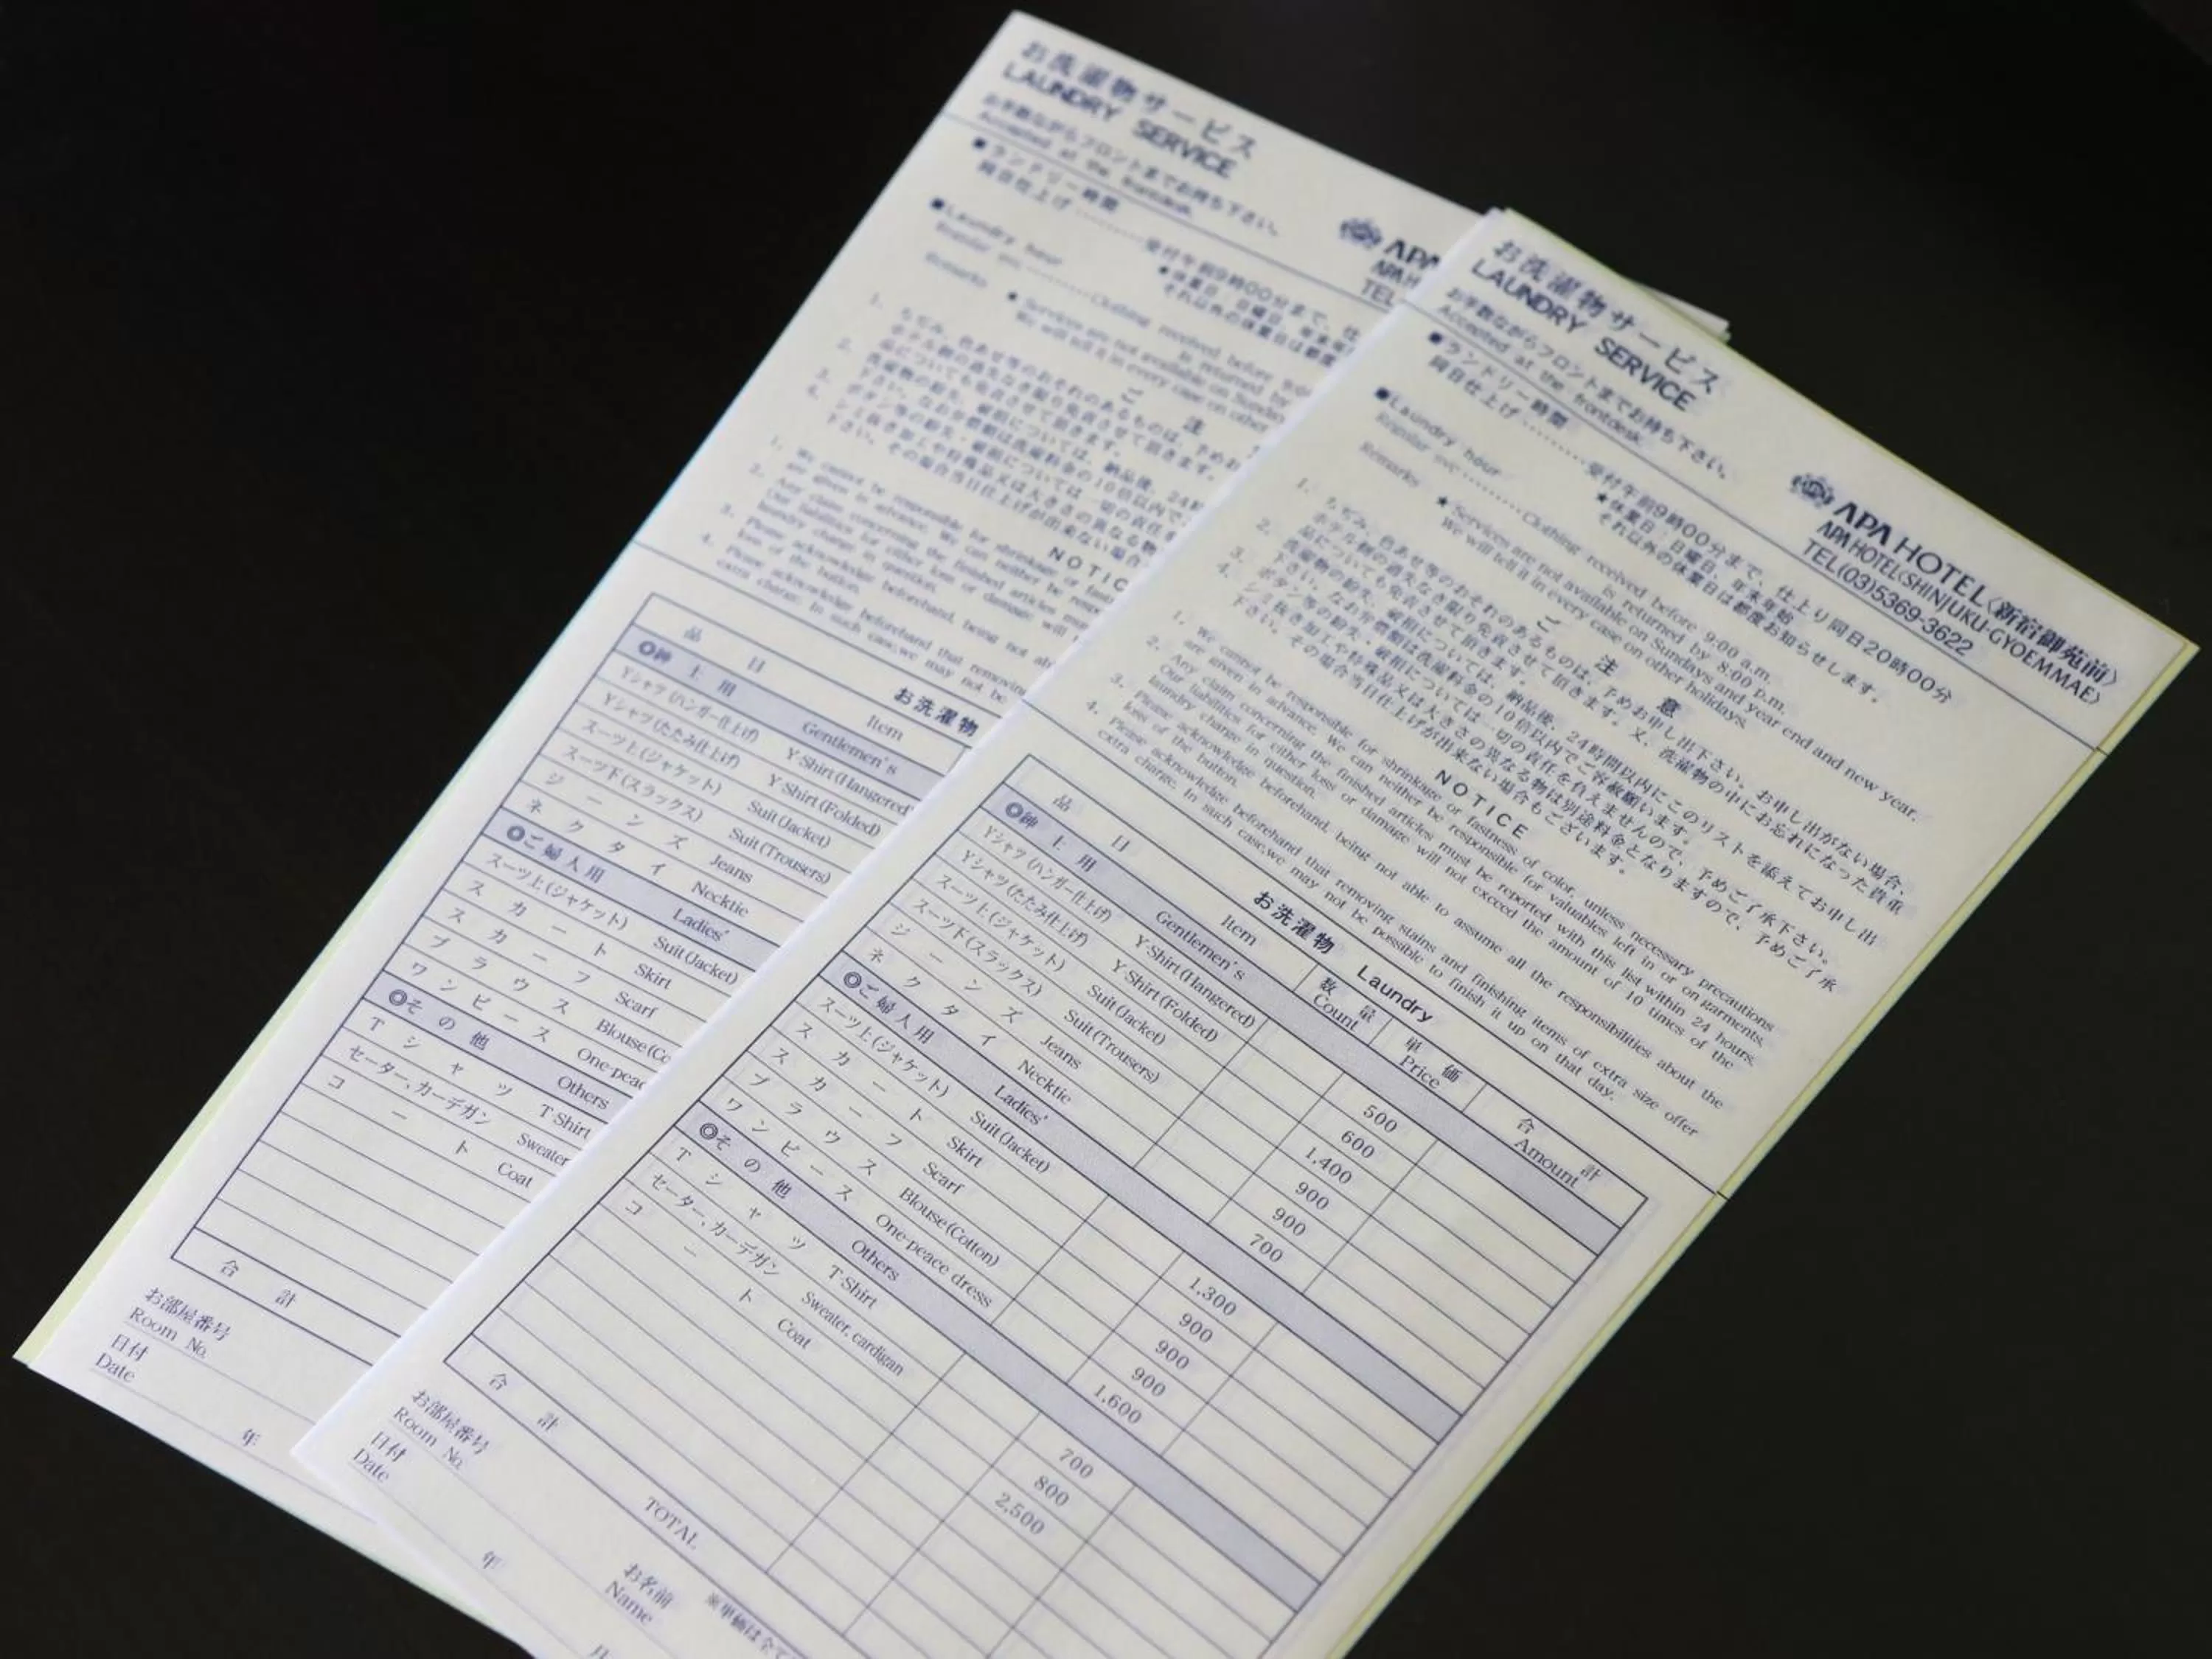 お洗濯物サービス
LAUNDRY SERVICE
お手数ながらフロントまでお持ち下さい。
Accepted at the frontdesk.
■ランドリー時間
同日仕上げ
■Laundry hour
Regular svc
Remarks
1.
2.
3.
4.
NOTIC
品目 お洗濯物
Item
◎紳士用 Gentlemen's
Yシャツ(ハンガー仕上げ) Y-Shirt(Hangered
Yシャツ(たたみ仕上げ) Y-Shirt(Folded)
スーツ上(ジャケット) Suit(Jacket)
スーツ下(スラックス) Suit(Trousers)
ジーンズ Jeans
ネクタイ Necktie
◎ご婦人用 Ladies'
スーツ上(ジャケット) Suit(Jacket)
スカート Skirt
スカーフ Scarf
ブラウス Blouse(Co
ワンピース One-peac
◎その他 Others
Tシャツ T-Shirt
セーター、カーデガン Sweater
コート Coat
合計
お部屋番号
Room No.
日付
Date
年
お洗濯物サービス
LAUNDRY SERVICE
お手数ながらフロントまでお持ち下さい。
Accepted at the frontdesk.
APA HOTEL〈新宿御苑前〉
APA HOTEL〈SHINJUKU-GYOEMMAE〉
TEL(03)5369-3622
■ランドリー時間
同日仕上げ………受付午前9時00分まで、仕上り同日20時00分
★休業日:日曜日、年末年始
それ以外の休業日は都度お知らせします。
■Laundry hour
Regular svc………Clothing received before 9:00 a.m.
is returned by 8:00 p.m.
Remarks ★Services are not available on Sundays and year end and new year.
We will tell it in every case on other holidays.
ご注意
1. ちぢみ、色あせ等のおそれのあるものは、予めお申し出下さい。お申し出がない場合、
ホテル側の過失なき限り免責させて頂きます。又、洗濯物の中にお忘れになった貴重
品についても免責させて頂きます。
2. 洗濯物の紛失、破損については、納品後、24時間以内にこのリストを添えてお申し出
下さい。なお弁償額は洗濯料金の10倍以内でご容赦願います。
3. ボタン等の紛失・破損については一切の責任を負えませんので、予めご了承下さい。
4. シミ抜き加工や特殊品又は大きさの異なる物は別途料金となりますので、予めご了承
下さい。その場合当日仕上げが出来ない場合もございます。
NOTICE
1. We cannot be responsible for shrinkage or fastness of color, unless necessary precautions
are given in advance. We can neither be responsible for valuables left in or on garments.
2. Any claim concerning the finished articles must be reported with this list within 24 hours.
Our liabilities for either loss or damage will not exceed the amount of 10 times of the
laundry charge in question.
3. Please acknowledge beforehand, being not able to assume all the responsibilities about the
loss of the button.
4. Please acknowledge beforehand that removing stains and finishing items of extra size offer
extra charge. In such case,we may not be possible to finish it up on that day.
お洗濯物 Laundry
品目 Item 数量 Count 単価 Price 合計 Amount
◎紳士用 Gentlemen's
Yシャツ(ハンガー仕上げ) Y-Shirt(Hangered) 500
Yシャツ(たたみ仕上げ) Y-Shirt(Folded) 600
スーツ上(ジャケット) Suit(Jacket) 1,400
スーツ下(スラックス) Suit(Trousers) 900
ジーンズ Jeans 900
ネクタイ Necktie 700
◎ご婦人用 Ladies'
スーツ上(ジャケット) Suit(Jacket) 1,300
スカート Skirt 900
スカーフ Scarf 900
ブラウス Blouse(Cotton) 900
ワンピース One-peace dress 1,600
◎その他 Others
Tシャツ T-Shirt 700
セーター、カーデガン Sweater, cardigan 800
コート Coat 2,500
合計 TOTAL
お部屋番号
Room No.
お名前
Name
※単価は全て
日付
Date
年
月